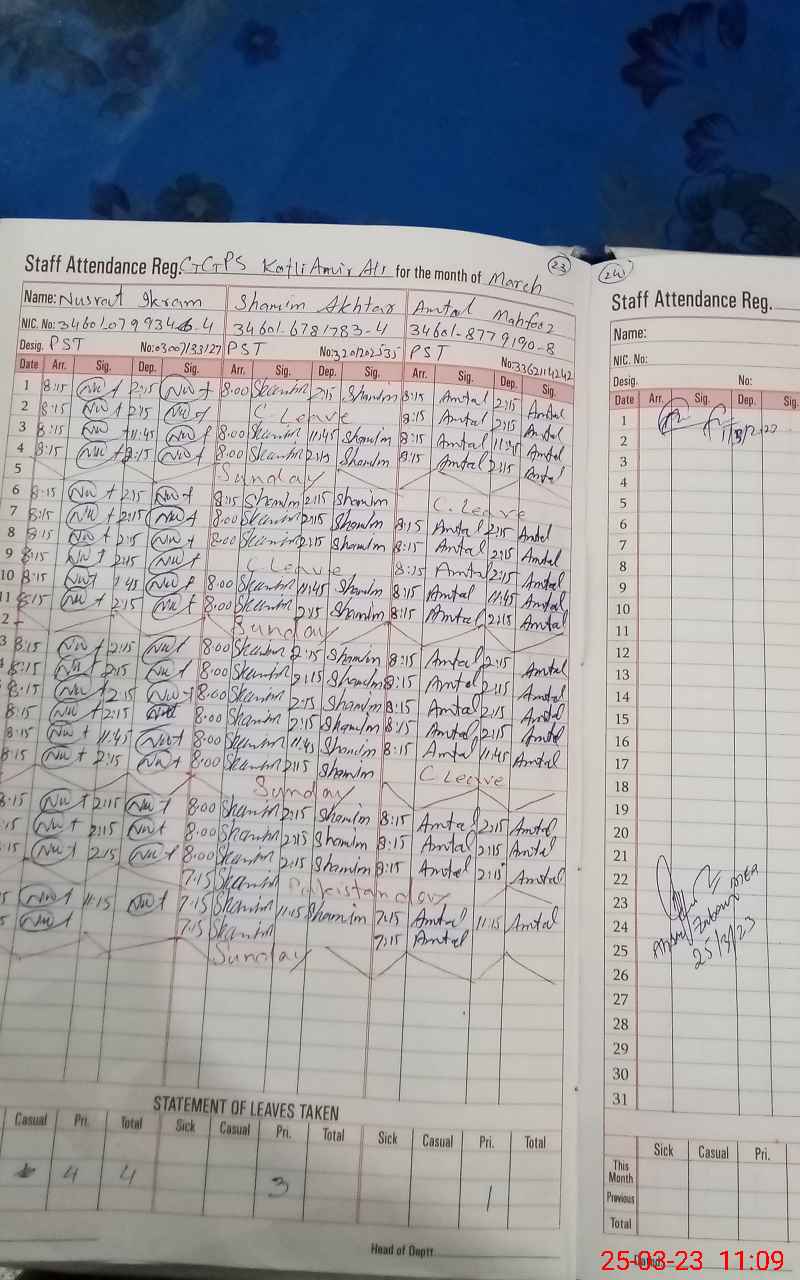 Staff Attendance Reg. GGPS Kotli Amir Ali for the month of March
23
Name: Nusrat Ikram Shamim Akhtar Amtal Mahfooz
NIC. No: 34601-0799346-4 34601-6781783-4 34601-8779190-8
Desig. PST PST No:3201202535 PST No:3362114242
Date Arr. Sig. Dep. Sig. Arr. Sig. Dep. Sig. Arr. Sig. Dep. Sig.
1 8:15 2:15 8:00 Shamim 2:15 Shamim 8:15 Amtal 2:15 Amtal
2 8:15 2:15 C. Leave 8:15 Amtal 2:15 Amtal
3 8:15 11:45 8:00 Shamim 11:45 Shamim 8:15 Amtal 11:45 Amtal
4 8:15 2:15 8:00 Shamim 2:15 Shamim 8:15 Amtal 2:15 Amtal
5 Sunday
6 8:15 2:15 8:15 Shamim 2:15 Shamim C. Leave
7 8:15 2:15 8:00 Shamim 2:15 Shamim 8:15 Amtal 2:15 Amtal
8 8:15 2:15 8:00 Shamim 2:15 Shamim 8:15 Amtal 2:15 Amtal
9 8:15 2:15 C Leave 8:15 Amtal 2:15 Amtal
10 8:15 1:45 8:00 Shamim 11:45 Shamim 8:15 Amtal 11:45 Amtal
11 8:15 2:15 8:00 Shamim 2:15 Shamim 8:15 Amtal 2:15 Amtal
2 Sunday
3 8:15 2:15 8:00 Shamim 2:15 Shamim 8:15 Amtal 2:15 Amtal
8:15 2:15 8:00 Shamim 2:15 Shamim 8:15 Amtal 2:15 Amtal
8:15 2:15 8:00 Shamim 2:15 Shamim 8:15 Amtal 2:15 Amtal
8:15 2:15 8:00 Shamim 2:15 Shamim 8:15 Amtal 2:15 Amtal
8:15 11:45 8:00 Shamim 11:45 Shamim 8:15 Amtal 11:45 Amtal
8:15 2:15 8:00 Shamim 2:15 Shamim C Leave
Sunday
8:15 2:15 8:00 Shamim 2:15 Shamim 8:15 Amtal 2:15 Amtal
:15 2:15 8:00 Shamim 2:15 Shamim 8:15 Amtal 2:15 Amtal
:15 2:15 8:00 Shamim 2:15 Shamim 8:15 Amtal 2:15 Amtal
7:15 Pakistan day
5 11:15 7:15 Shamim 11:15 Shamim 7:15 Amtal 11:15 Amtal
5 7:15 Shamim 7:15 Amtal
Sunday
STATEMENT OF LEAVES TAKEN
Casual Pri. Total Sick Casual Pri. Total Sick Casual Pri. Total
4 4 3 1
Head of Deptt.
24
Staff Attendance Reg.
Name:
NIC. No:
Desig. No:
Date Arr. Sig. Dep. Sig.
1
2
3
4
5
6
7
8
9
10
11
12
13
14
15
16
17
18
19
20
21
22
23
24
25
26
27
28
29
30
31
25/3/23
Sick Casual Pri.
This Month
Previous
Total
25-03-23 11:09